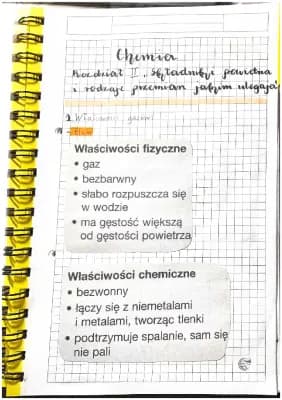 Chemia
Rozdział II, Składniki powietrza
i rodzaje przemian jakim ulegają
Właściwości fizyczne
• gaz
• bezbarwny
• słabo rozpuszcza się
w wodzie
• ma gęstość większą
od gęstości powietrza
Właściwości chemiczne
• bezwonny
• łączy się z niemetalami
i metalami, tworząc tlenki
• podtrzymuje spalanie, sam się
nie pali